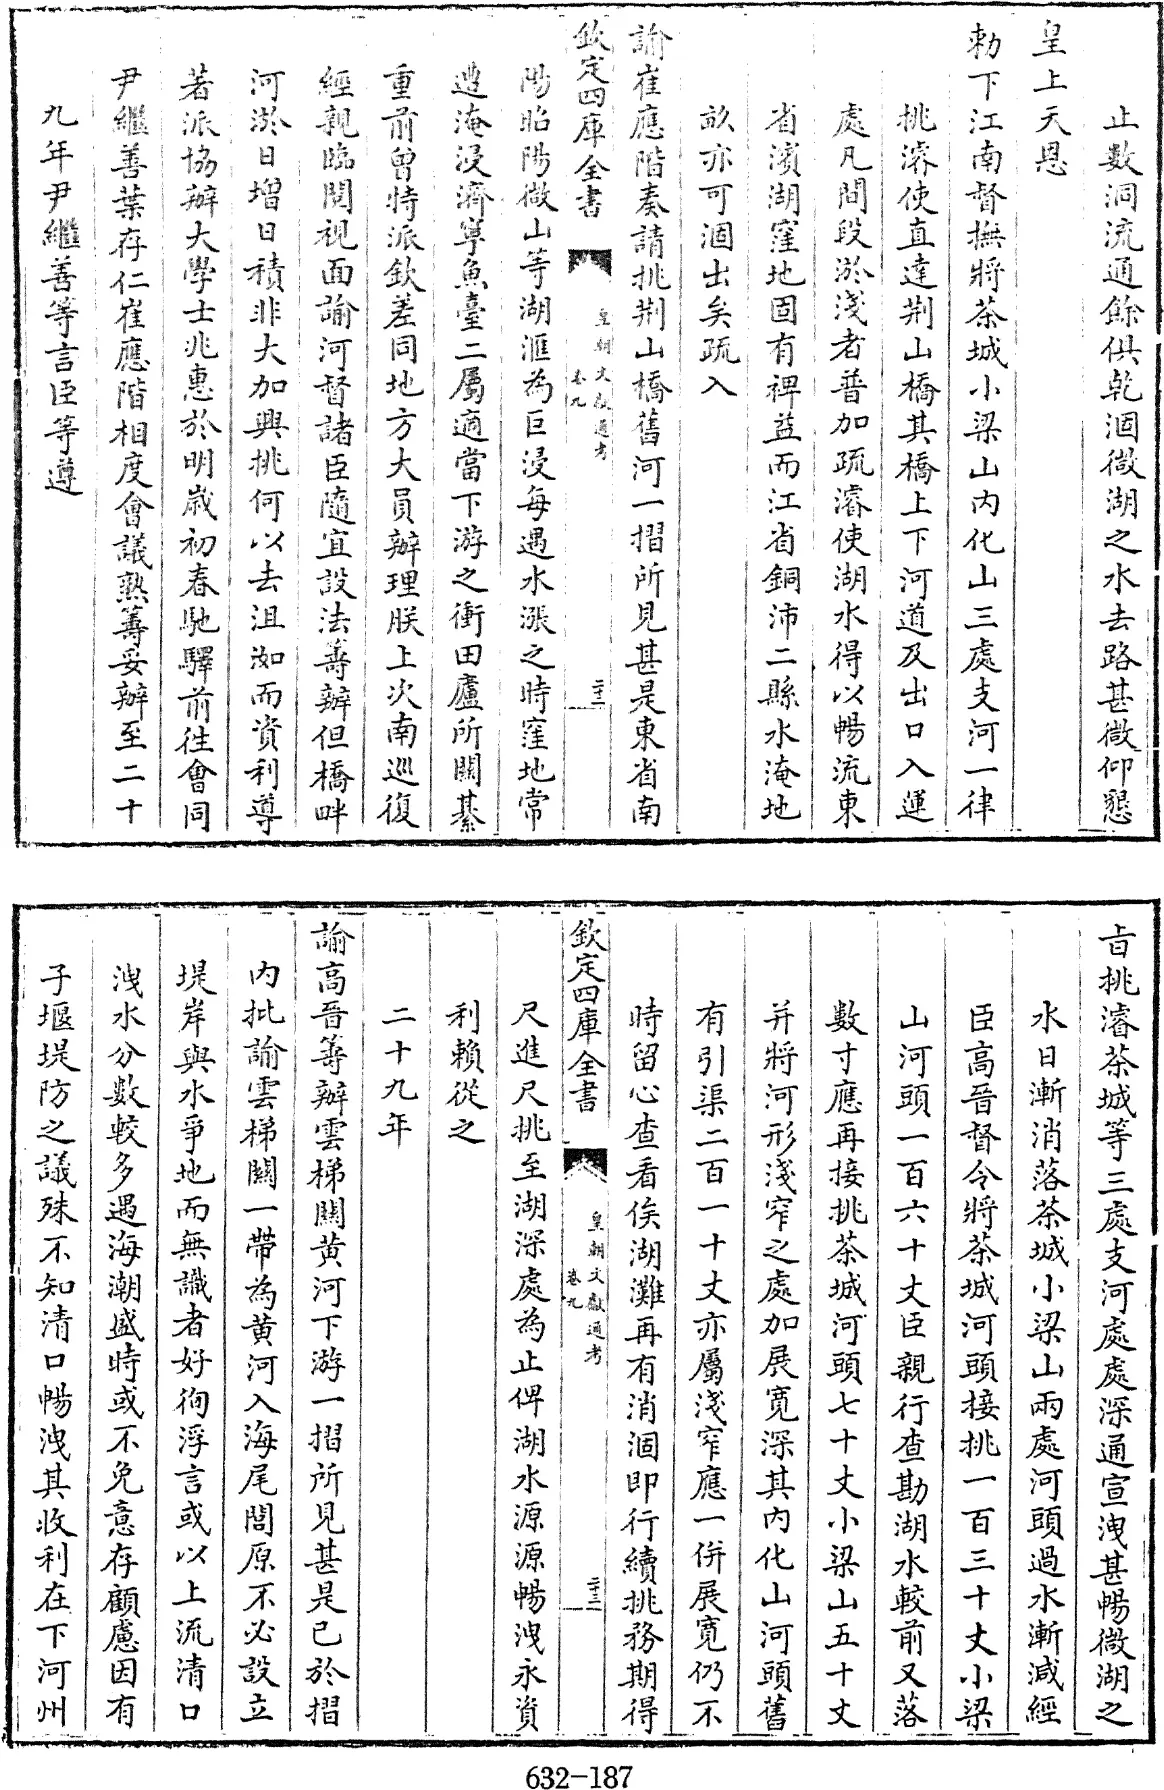 止數洞流通餘供乾涸微湖之水去路甚微仰懇
皇上天恩
勅下江南督撫將茶城小梁山内化山三處支河一律
挑濬使直達荆山橋其橋上下河道及出口入運
處凡間段淤淺者普加疏濬使湖水得以暢流東
省濱湖窪地固有裨益而江省銅沛二縣水淹地
畝亦可涸出矣疏入
諭崔應階奏請挑荆山橋舊河一摺所見甚是東省南
欽定四庫全書
皇朝文獻通考
卷九
二十二
陽昭陽微山等湖滙為巨浸每遇水漲之時窪地常
遭淹浸濟寧魚臺二屬適當下游之衝田廬所關綦
重前曾特派欽差同地方大員辦理朕上次南巡復
經親臨閱視面諭河督諸臣隨宜設法籌辦但橋畔
河淤日增日積非大加興挑何以去沮洳而資利導
著派協辦大學士兆惠於明歲初春馳驛前往會同
尹繼善葉存仁崔應階相度會議熟籌妥辦至二十
九年尹繼善等言臣等遵
旨挑濬茶城等三處支河處處深通宣洩甚暢微湖之
水日漸消落茶城小梁山兩處河頭過水漸減經
臣高晉督令將茶城河頭接挑一百三十丈小梁
山河頭一百六十丈臣親行查勘湖水較前又落
數寸應再接挑茶城河頭七十丈小梁山五十丈
并將河形淺窄之處加展寬深其内化山河頭舊
有引渠二百一十丈亦屬淺窄應一併展寬仍不
時留心查看俟湖灘再有消涸即行續挑務期得
欽定四庫全書
皇朝文獻通考
卷九
二十三
尺進尺挑至湖深處為止俾湖水源源暢洩永資
利賴從之
二十九年
諭高晉等辦雲梯關黄河下游一摺所見甚是已於摺
内批諭雲梯關一帶為黄河入海尾閭原不必設立
堤岸與水爭地而無識者好徇浮言或以上流清口
洩水分數較多遇海潮盛時或不免意存顧慮因有
子堰堤防之議殊不知清口暢洩其收利在下河州
632-187